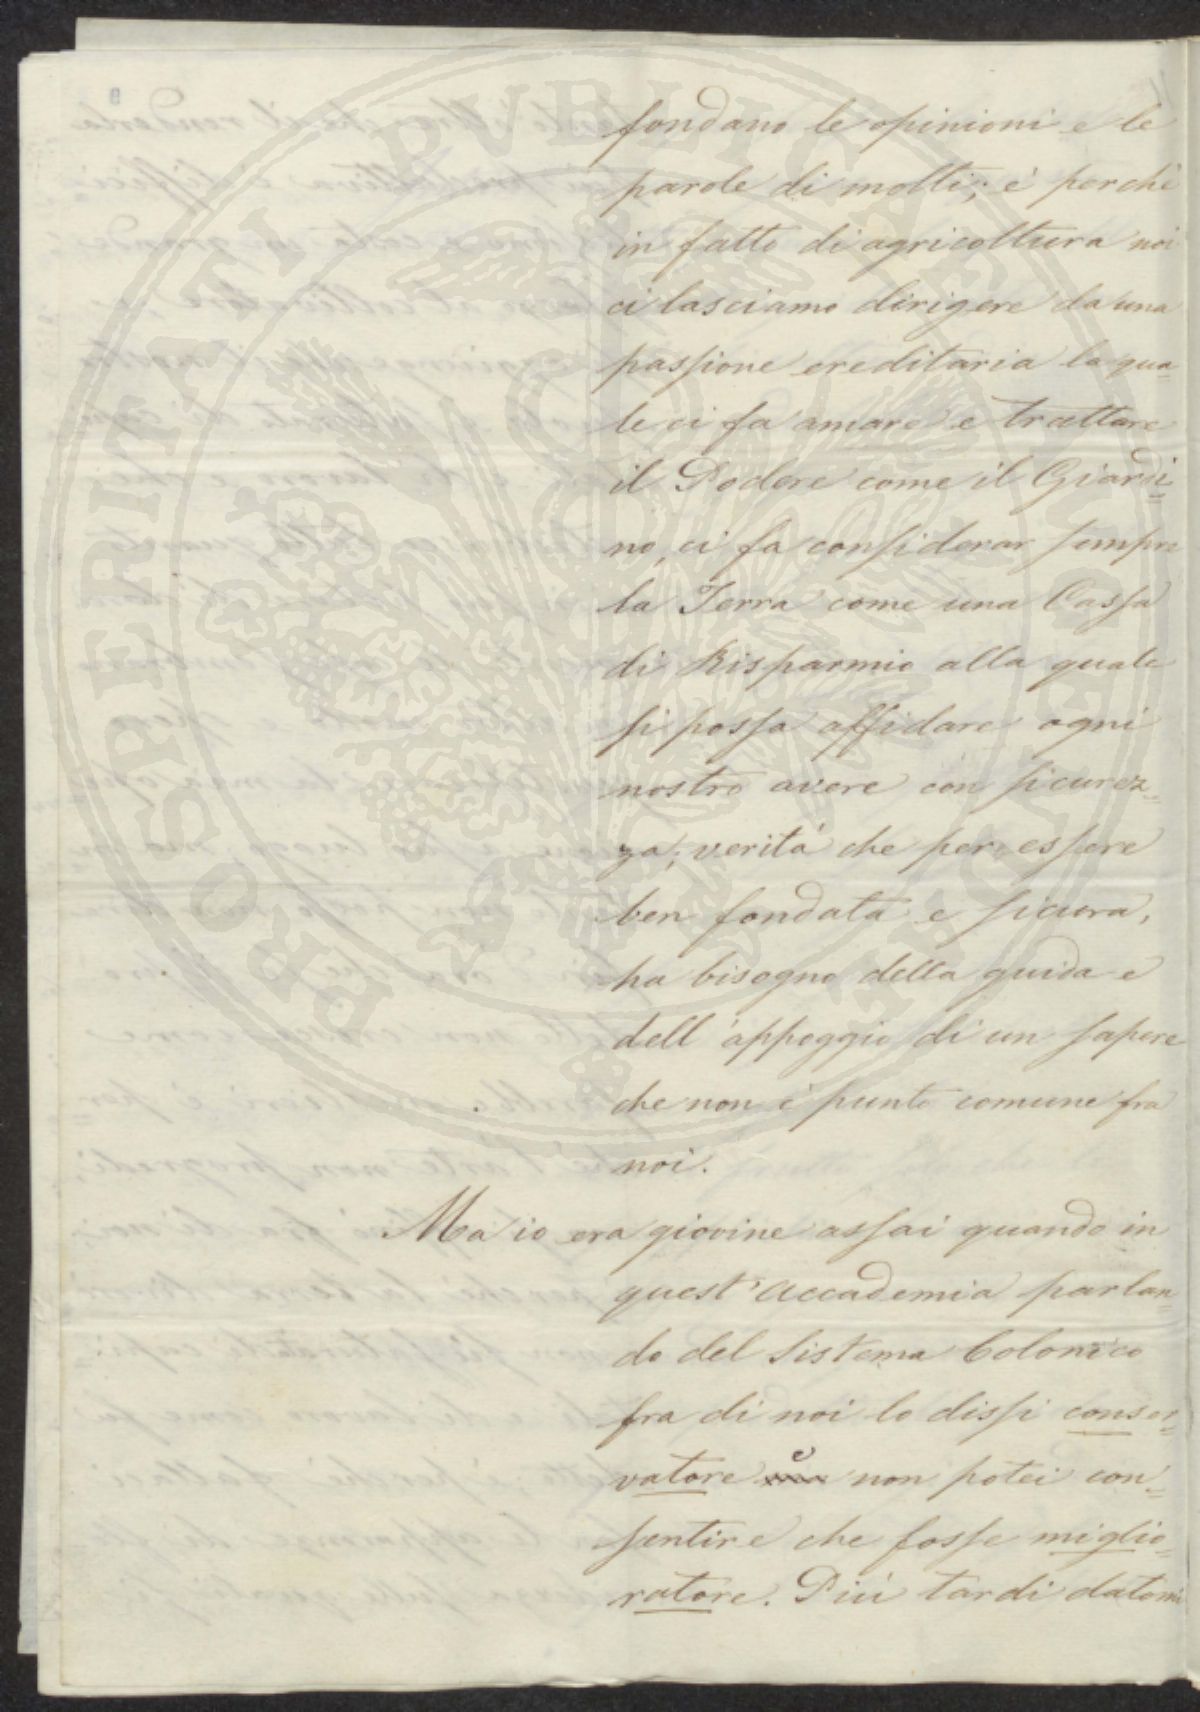 fondano le opinioni e le
parole di molti; è perchè
in fatto di agricoltura noi
ci lasciamo dirigere da una
passione ereditaria la qua=
le ci fa amare e trattare
il Podere come il Giardi=
no, ci fa considerar sempre
la Terra come una Cassa
di Risparmio alla quale
si possa affidare ogni
nostro avere con sicurez=
za; verità che per essere
ben fondata e sicura,
ha bisogno della guida e
dell'appoggio di un sapere
che non è punto comune fra
noi.
Ma io era giovine assai quando in
quest'Accademia parlan=
do del Sistema Colonico
fra di noi lo dissi conser=
vatore e non potei con=
sentire che fosse miglio=
ratore. Più tardi datomi
PROSPERITATI PVBLICAE